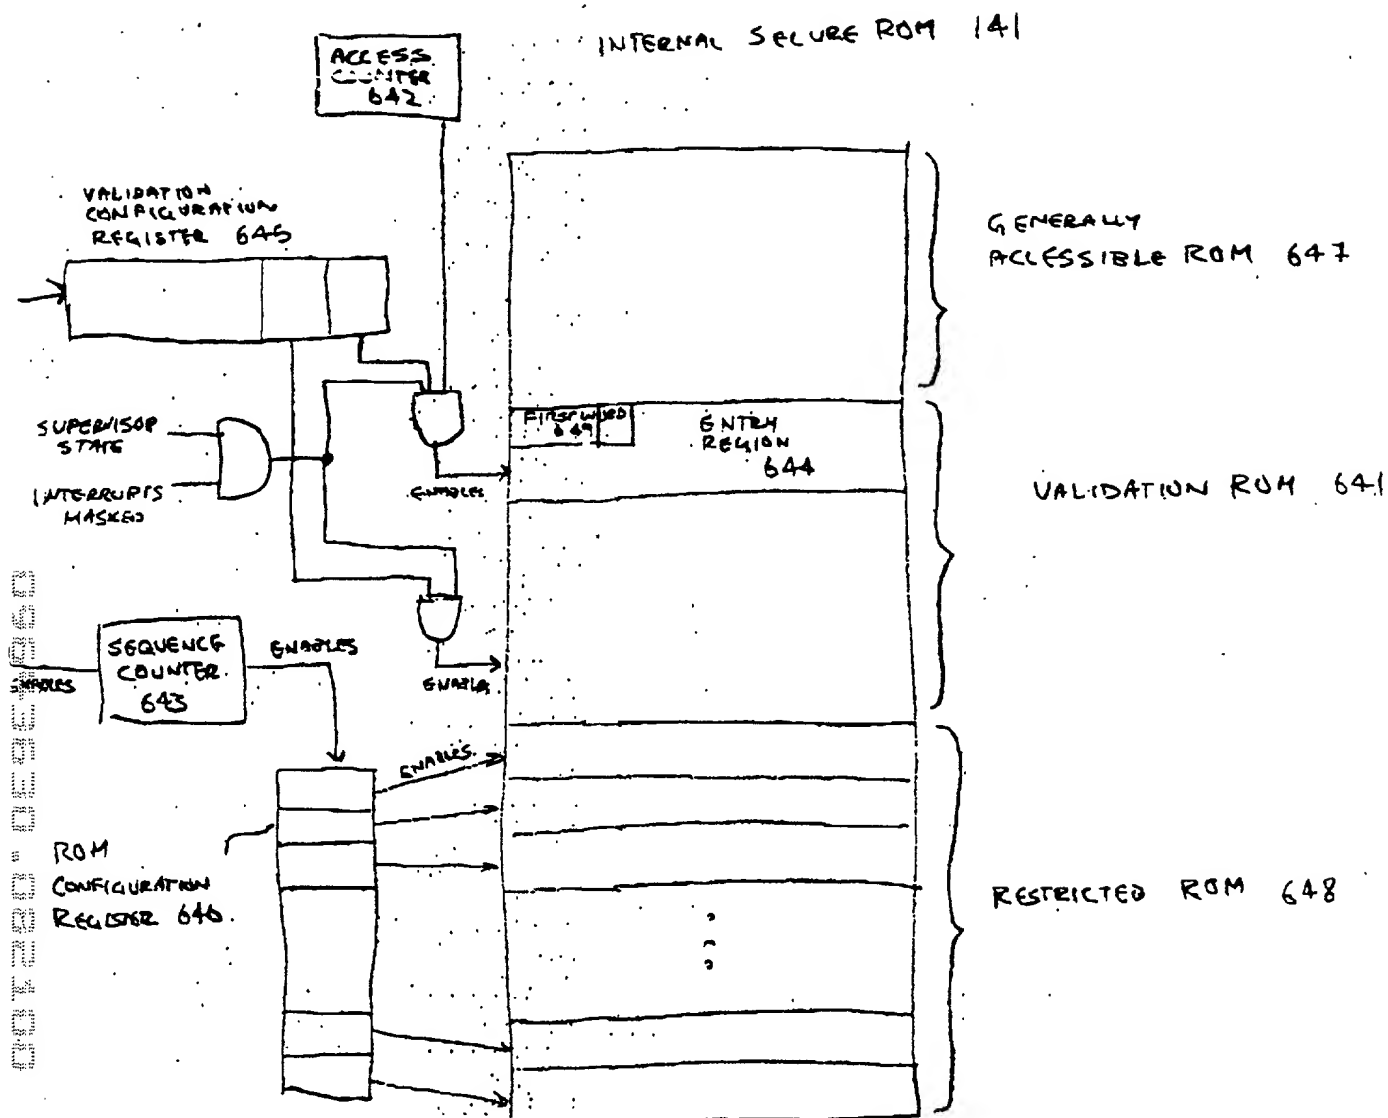 INTERNAL SECURE ROM 141
ACCESS
COUNTER
642
VALIDATION
CONFIGURATION
REGISTER 645
GENERALLY
ACCESSIBLE ROM 647
SUPERVISOR
STATE
INTERRUPTS
MASKED
FIRST WORD
649
ENTRY
REGION
644
ENABLES
VALIDATION ROM 641
SEQUENCE
COUNTER
643
ENABLES
ENABLES
ENABLES
ROM
CONFIGURATION
REGISTER 646
RESTRICTED ROM 648